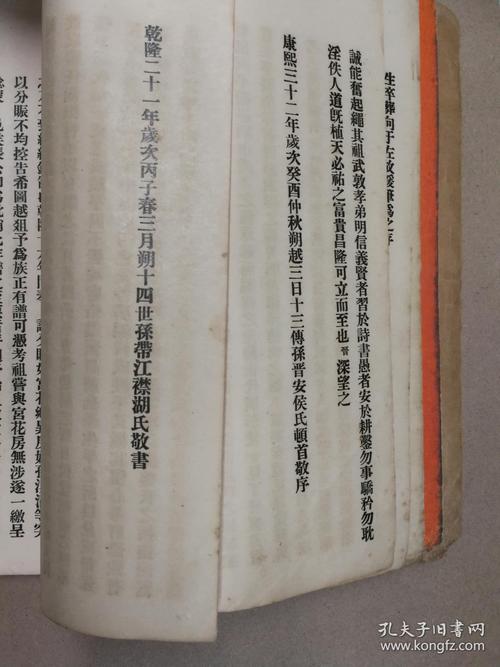 生卒葬向于左故援筆爲之序
誠能奮起繩其祖武敦孝弟明信義賢者習於詩書愚者安於耕鑿勿事驕矜勿耽
淫佚人道既植天必祐之富貴昌隆可立而至也晉深望之
康熙三十二年歲次癸酉仲秋朔越三日十三傳孫晋安侯氏頓首敬序
乾隆二十一年歲次丙子春三月朔十四世孫帶江襟湖氏敬書
以分賬不均控告希圖越爼予爲族正有譜可憑考祖嘗與宮花房無涉遂一繳呈
孔夫子旧书网
kongfz.com